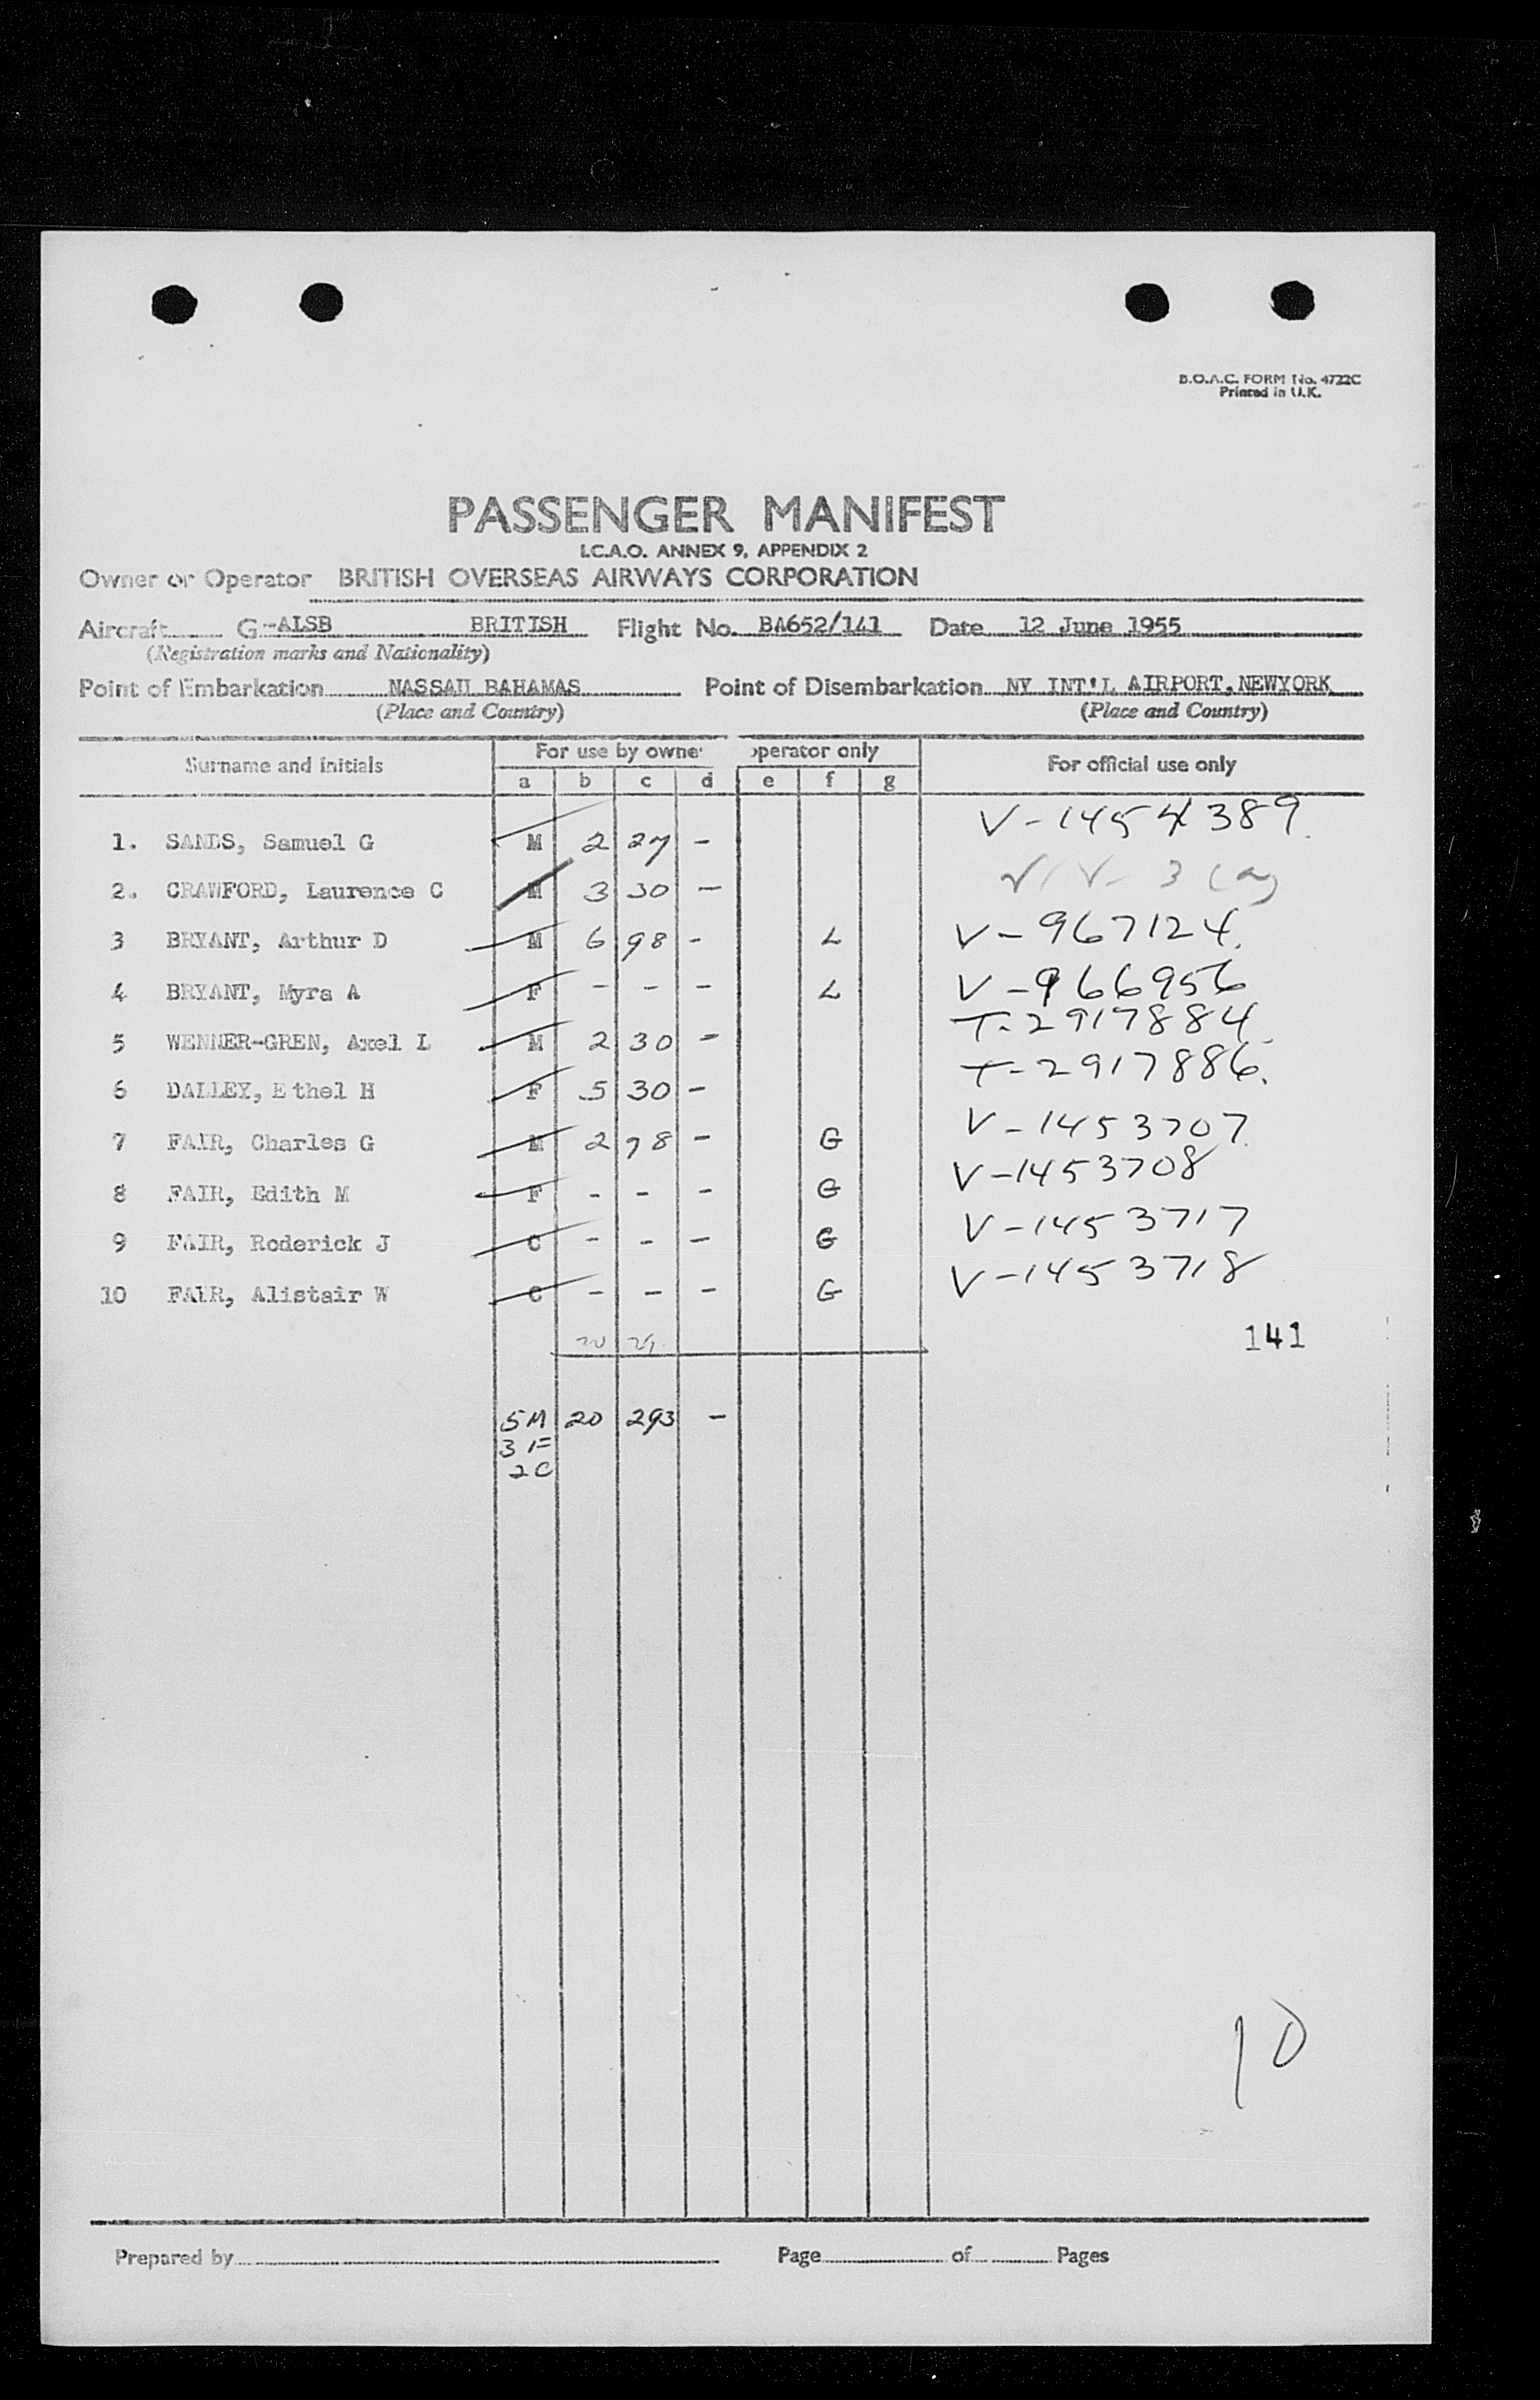 B.O.A.C. FORM No. 4722C
Printed in U.K.
PASSENGER MANIFEST
I.C.A.O. ANNEX 9, APPENDIX 2
Owner or Operator BRITISH OVERSEAS AIRWAYS CORPORATION
Aircraft G-ALSB BRITISH Flight No. BA652/141 Date 12 June 1955
(Registration marks and Nationality)
Point of Embarkation NASSAU BAHAMAS Point of Disembarkation NY INT'L AIRPORT, NEWYORK
(Place and Country) (Place and Country)
Surname and initials For use by owner operator only For official use only
a b c d e f g
1. SANDS, Samuel G M 2 27 - V-1454389
2. CRAWFORD, Laurence C M 3 30 -
3 BRYANT, Arthur D M 6 98 - L V-967124
4 BRYANT, Myra A F - - - L V-966956
5 WENNER-GREN, Axel L M 2 30 - T-2917884
6 DALLEY, Ethel H F 5 30 - T-2917886.
7 FAIR, Charles G M 2 78 - G V-1453707
8 FAIR, Edith M F - - - G V-1453708
9 FAIR, Roderick J C - - - G V-1453717
10 FAIR, Alistair W C - - - G V-1453718
141
5M 20 293 -
3F
2C
10
Prepared by Page of Pages